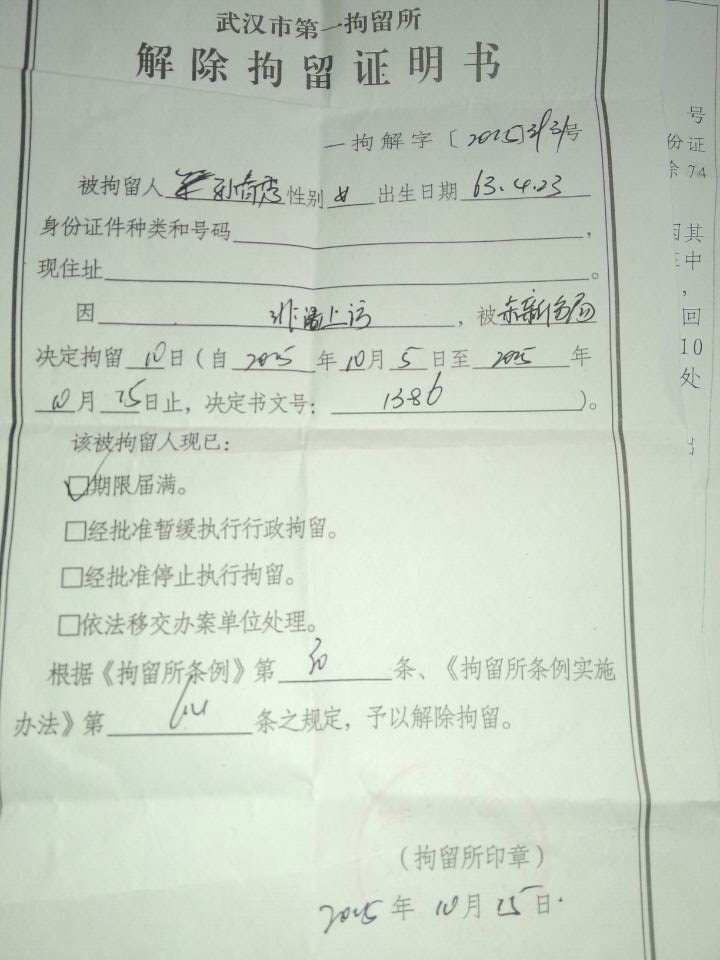 武汉市第一拘留所
解除拘留证明书
一拘解字〔2025〕号
被拘留人 性别 女 出生日期 63.4.23
身份证件种类和号码 ，
现住址 。
因 上访 ，被 分局
决定拘留 10 日（自 2025 年 10 月 5 日至 2025 年
10 月 15 日止，决定书文号： 1386 ）。
该被拘留人现已：
☑期限届满。
□经批准暂缓执行行政拘留。
□经批准停止执行拘留。
□依法移交办案单位处理。
根据《拘留所条例》第 30 条、《拘留所条例实施
办法》第 条之规定，予以解除拘留。
（拘留所印章）
2025 年 10 月 15 日.
号
份证
74
其
中
，
回
10
处